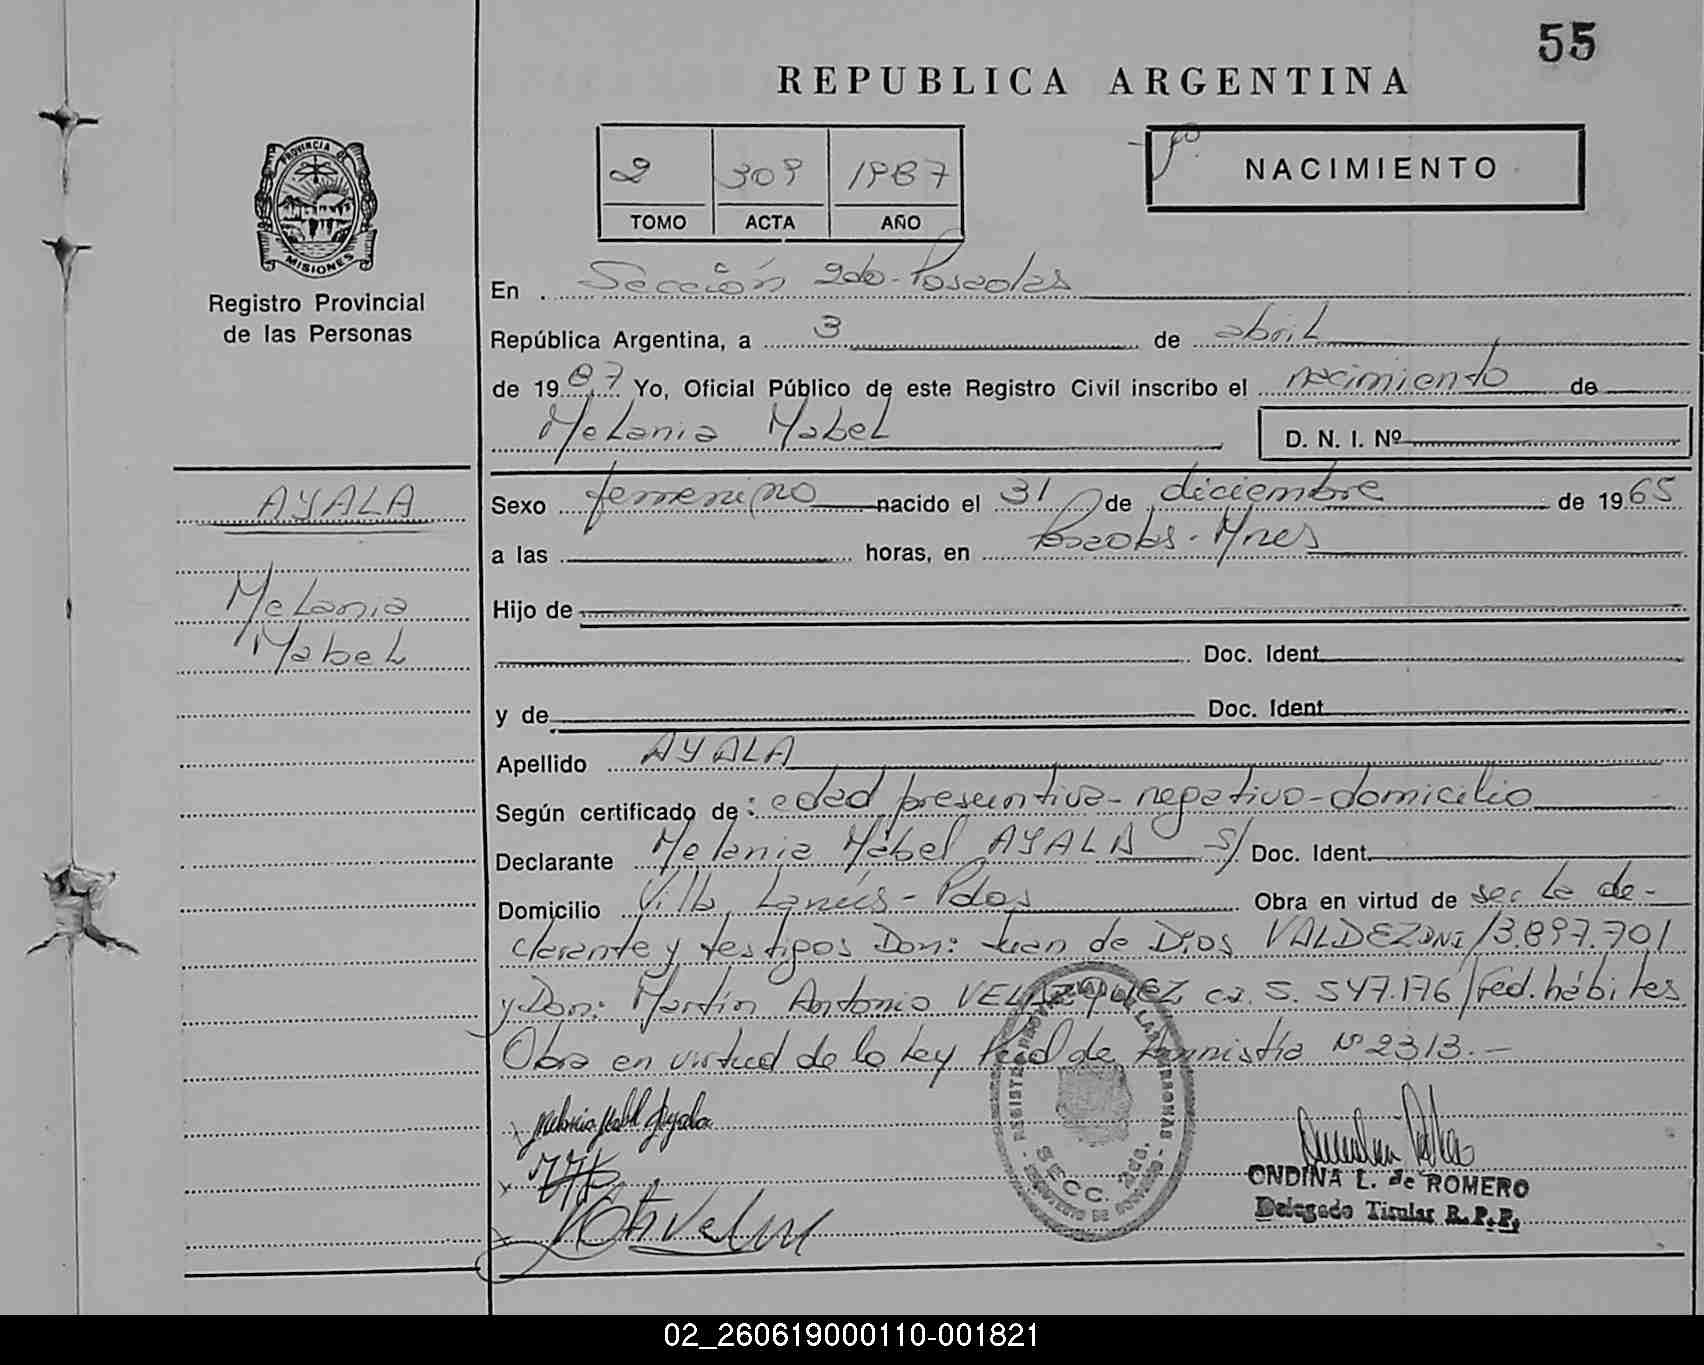 55
REPUBLICA ARGENTINA
2 309 1987
TOMO ACTA AÑO
NACIMIENTO
PROVINCIA DE
MISIONES
Registro Provincial
de las Personas
En Sección 2do-Posadas
República Argentina, a 3 de abril
de 1987 Yo, Oficial Público de este Registro Civil inscribo el nacimiento de
Melania Mabel
D. N. I. Nº
AYALA
Melania
Mabel
Sexo femenino nacido el 31 de diciembre de 1965
a las horas, en Posadas-Mnes
Hijo de
Doc. Ident.
y de Doc. Ident.
Apellido AYALA
Según certificado de: edad presuntiva-negativo-domicilio
Declarante Melania Mabel AYALA S/ Doc. Ident.
Domicilio Villa Lanús-Pdas Obra en virtud de ser la de-
clarante y testigos Don: Juan de Dios VALDEZ DNI 13.897.701
y Don: Martín Antonio VELAZQUEZ, 5.547.176/red. hábiles
Obra en virtud de la Ley de Amnistía Nº 2313.-
Melania Mabel Ayala
REGISTRO PROVINCIAL DE LAS PERSONAS
SECC. 2do.
ONDINA L. de ROMERO
Delegado Titular R.P.P.
02_260619000110-001821